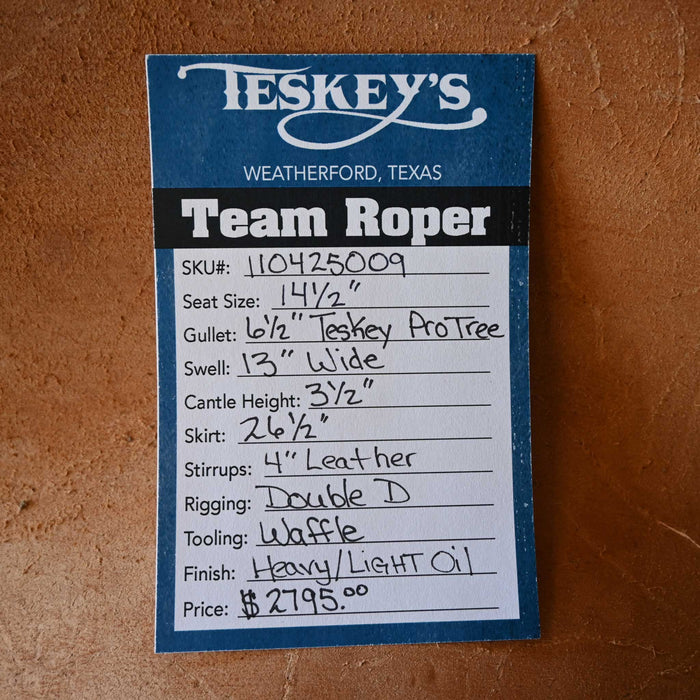 TESKEY'S
WEATHERFORD, TEXAS
Team Roper
SKU#: 110425009
Seat Size: 14 1/2"
Gullet: 6 1/2" Teskey ProTree
Swell: 13" Wide
Cantle Height: 3 1/2"
Skirt: 26 1/2"
Stirrups: 4" Leather
Rigging: Double D
Tooling: Waffle
Finish: Heavy/LIGHT Oil
Price: $2795.00